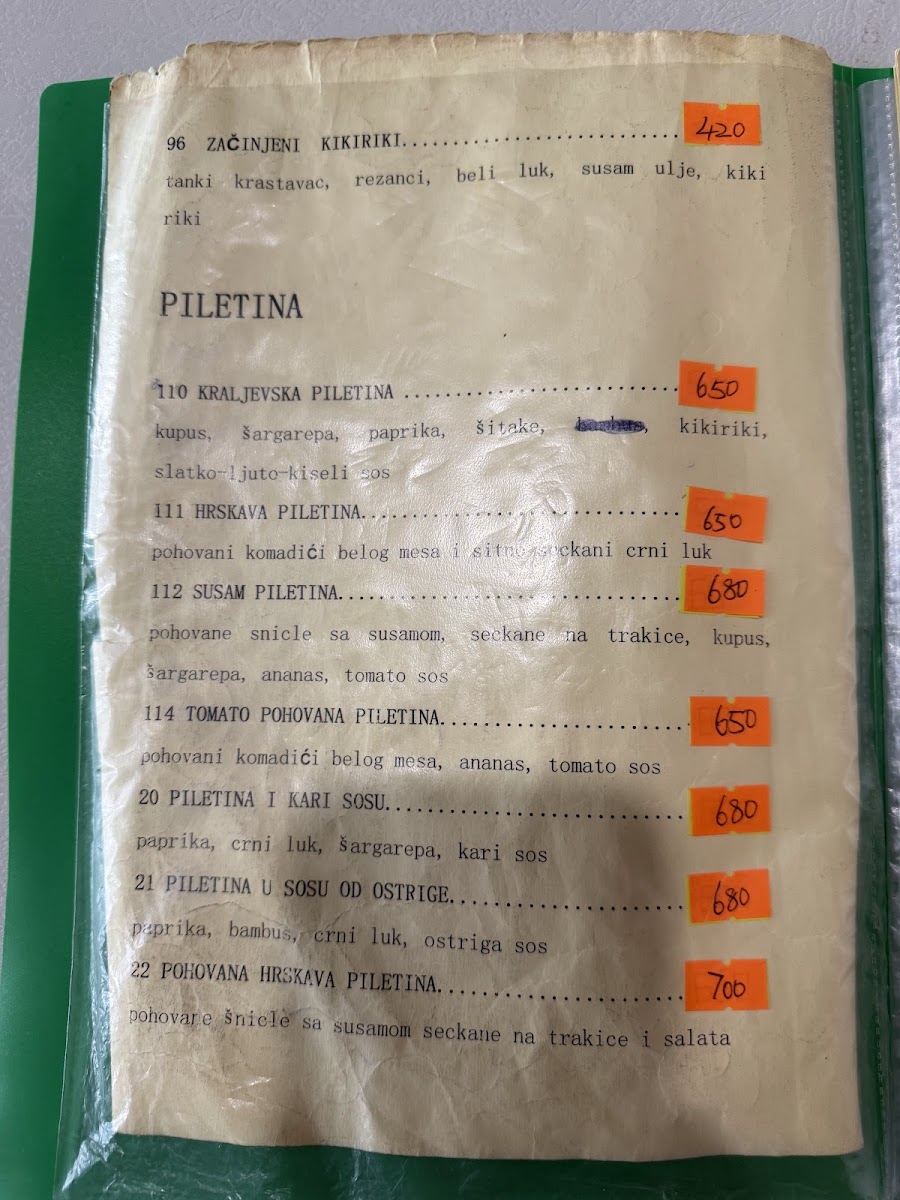 96 ZAČINJENI KIKIRIKI........................420
tanki krastavac, rezanci, beli luk, susam ulje, kiki
riki
PILETINA
110 KRALJEVSKA PILETINA ......................650
kupus, šargarepa, paprika, šitake, kikiriki,
slatko-ljuto-kiseli sos
111 HRSKAVA PILETINA.........................650
pohovani komadići belog mesa i sitno seckani crni luk
112 SUSAM PILETINA...........................680
pohovane snicle sa susamom, seckane na trakice, kupus,
šargarepa, ananas, tomato sos
114 TOMATO POHOVANA PILETINA...................650
pohovani komadići belog mesa, ananas, tomato sos
20 PILETINA I KARI SOSU.......................680
paprika, crni luk, šargarepa, kari sos
21 PILETINA U SOSU OD OSTRIGE..................680
paprika, bambus, crni luk, ostriga sos
22 POHOVANA HRSKAVA PILETINA...................700
pohovane šnicle sa susamom seckane na trakice i salata